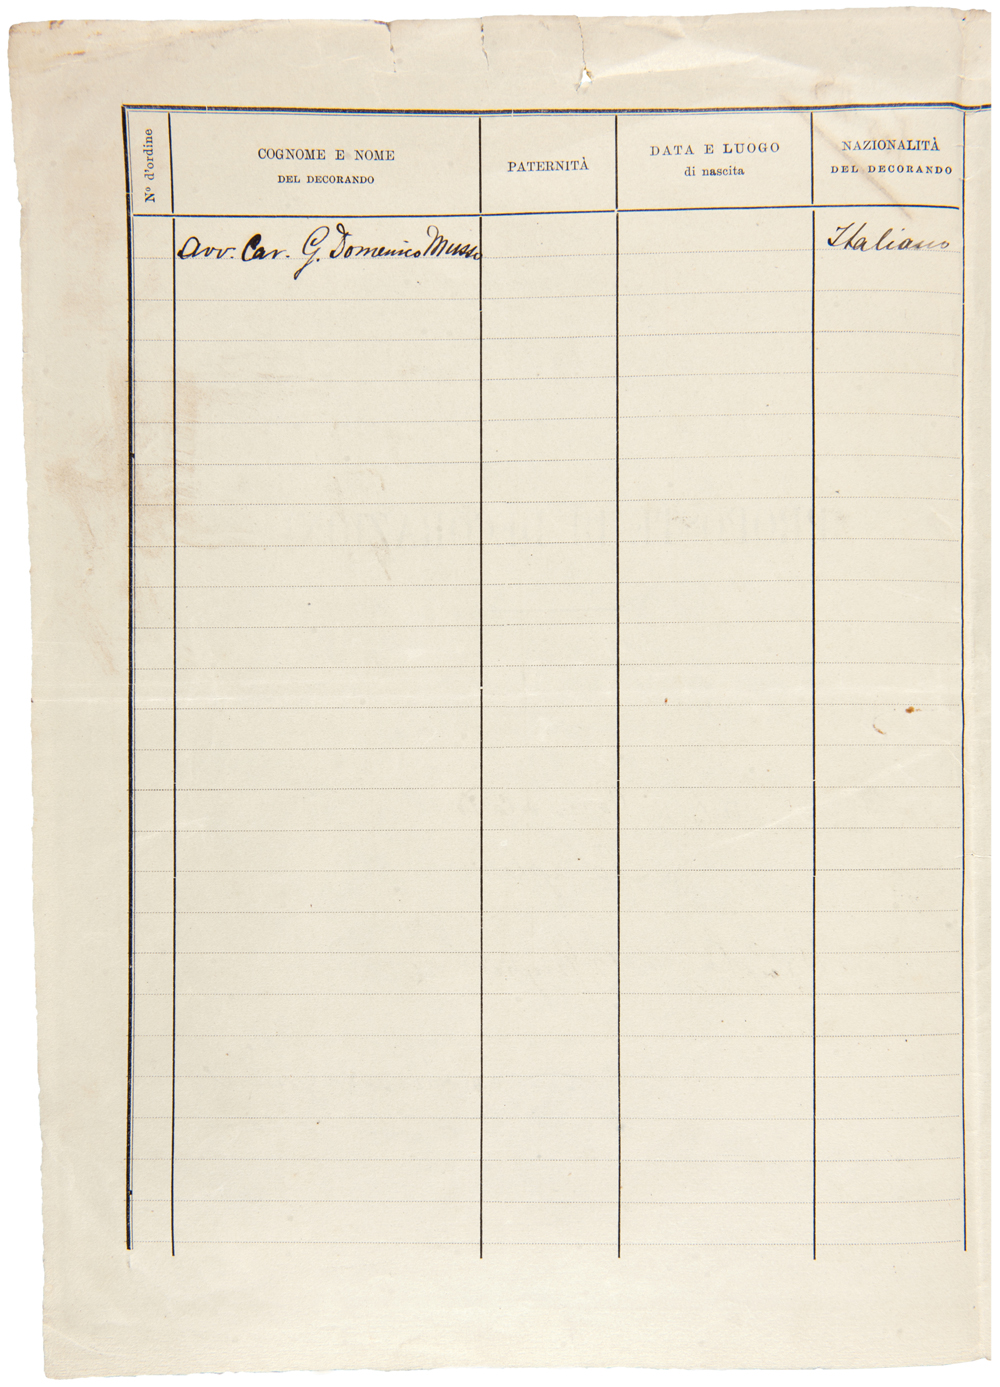 Nº d'ordine
COGNOME E NOME
DEL DECORANDO
PATERNITÀ
DATA E LUOGO
di nascita
NAZIONALITÀ
DEL DECORANDO
Avv. Cav. G. Domenico Musso
Italiano